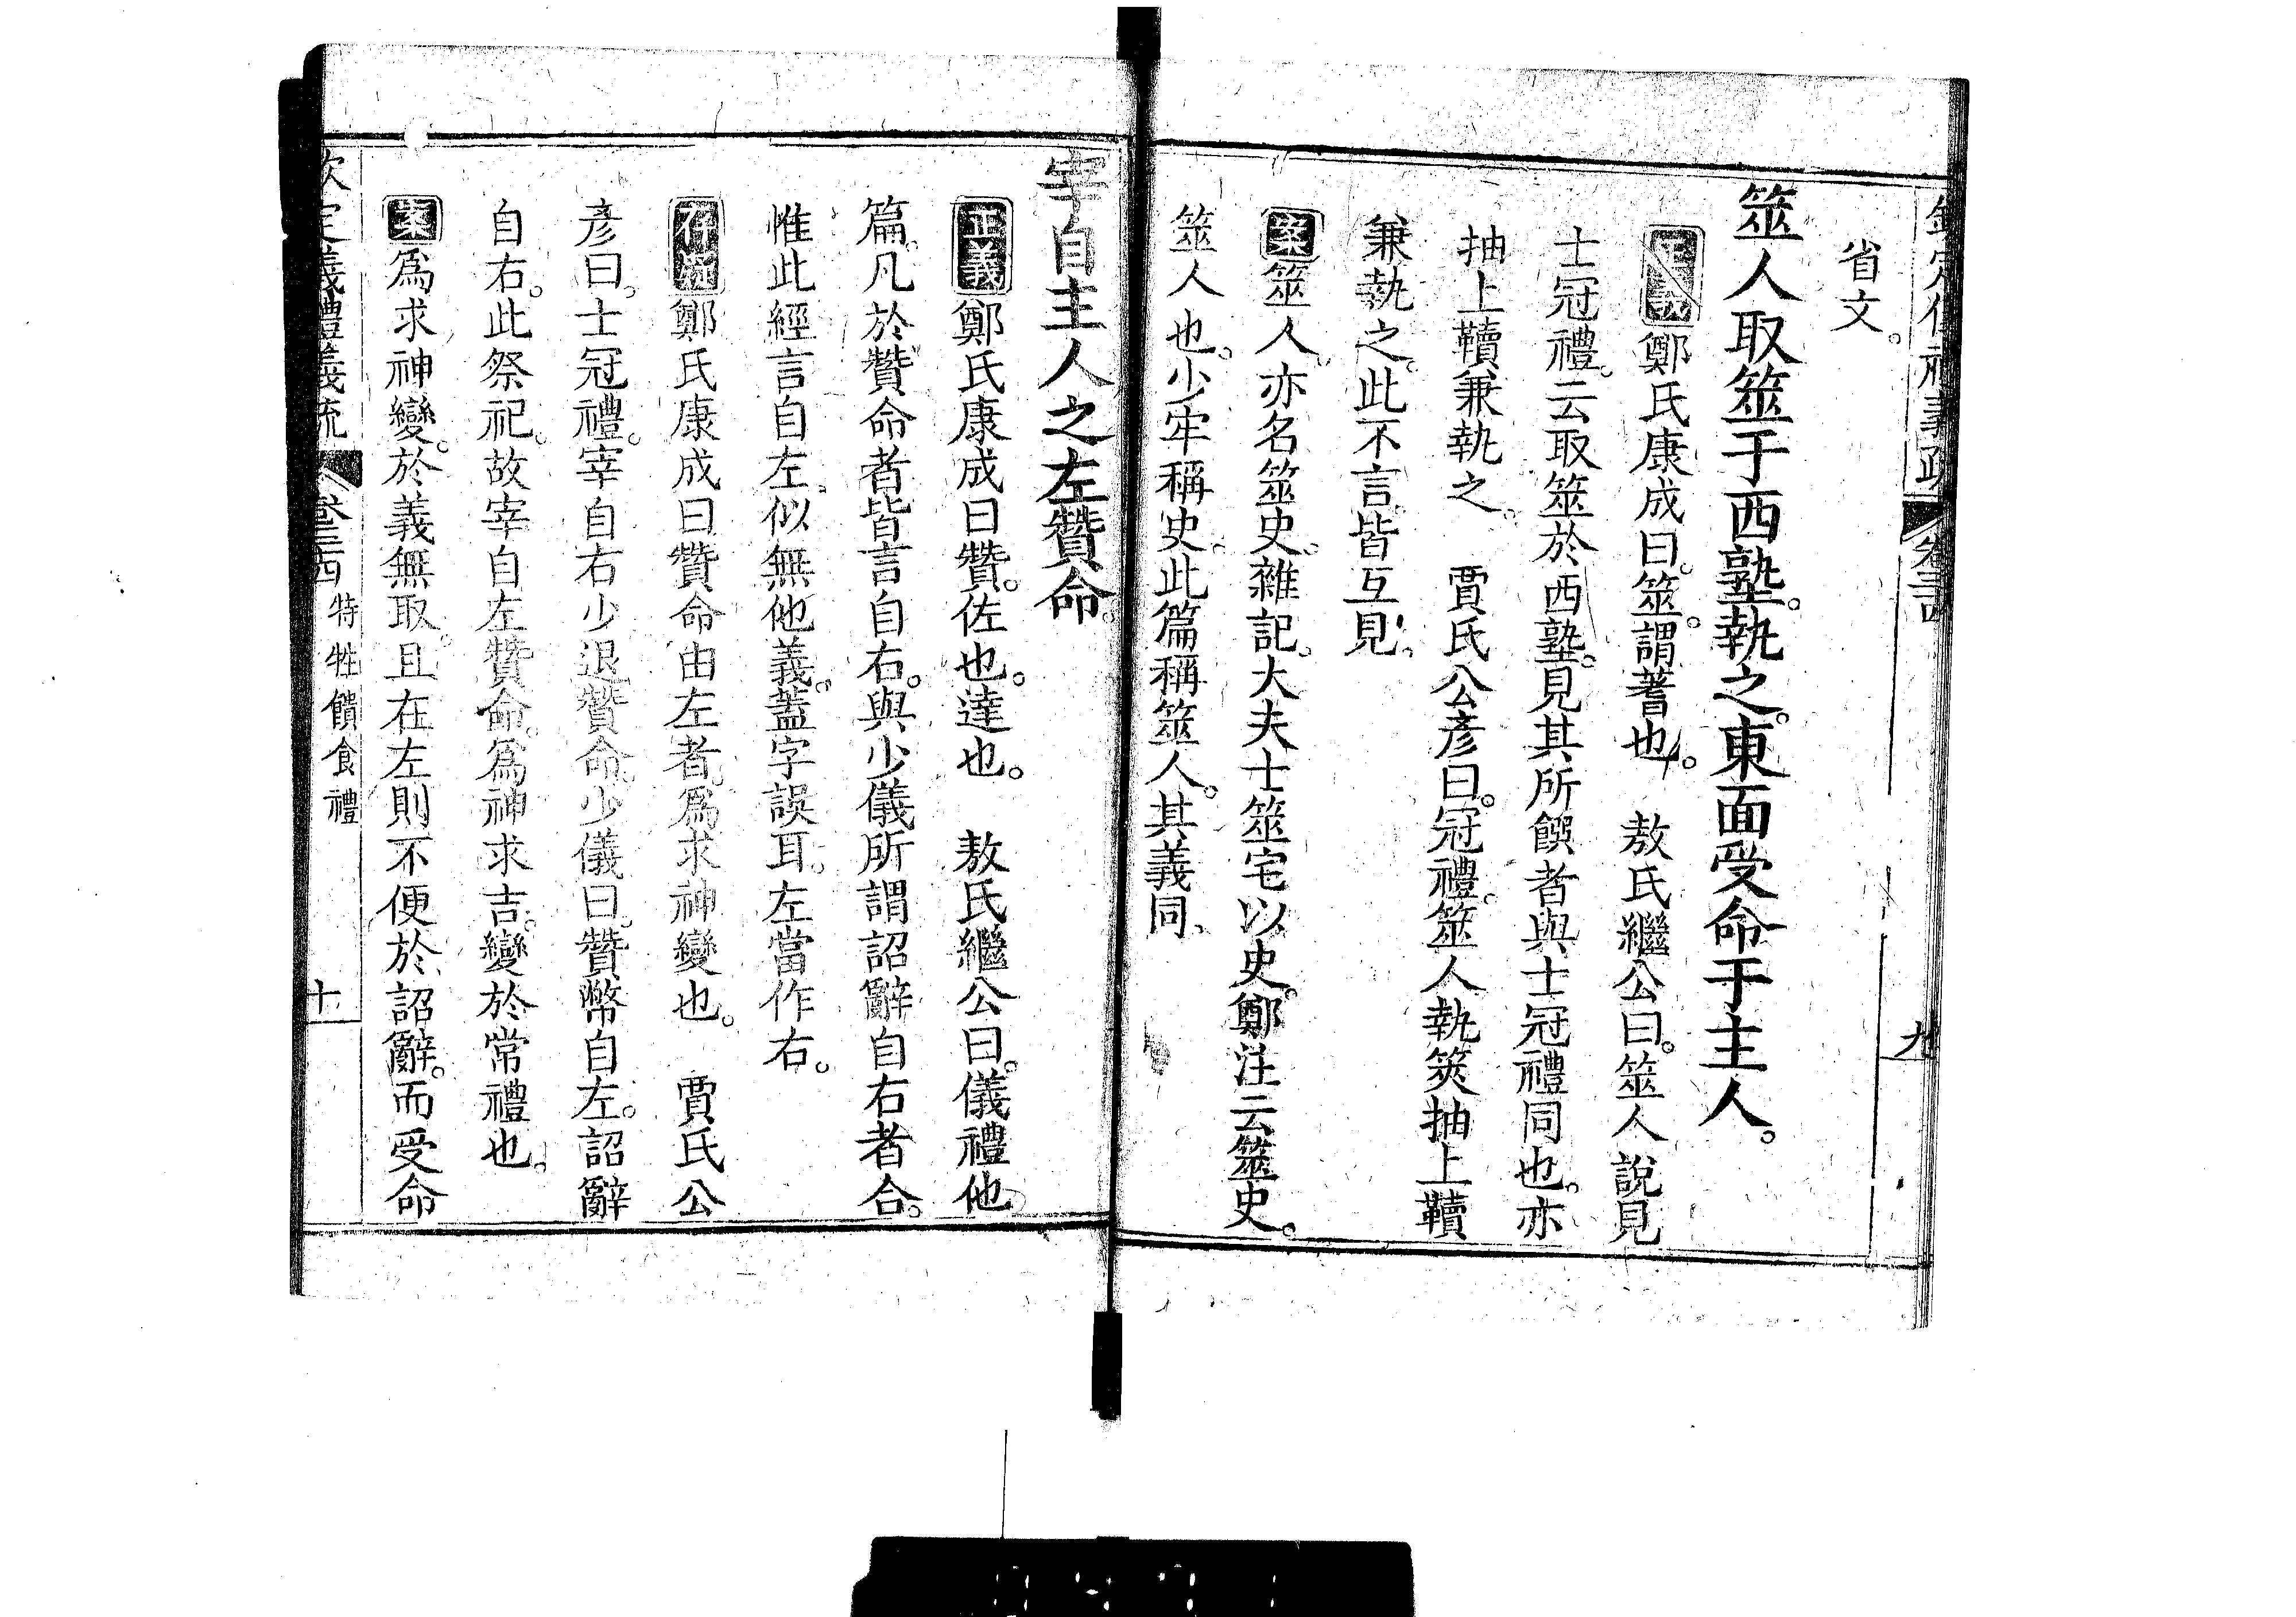 欽定儀禮義疏 卷三四 九
省文。
筮人取筮于西塾。執之。東面受命于主人。
正義鄭氏康成曰。筮。謂蓍也。 敖氏繼公曰。筮人說見
士冠禮。云取筮於西塾。見其所饌者與士冠禮同也。亦
抽上韇兼執之。 賈氏公彥曰。冠禮。筮人執筴抽上韇
兼執之。此不言。皆互見。
案筮人。亦名筮史。雜記。大夫士筮宅以史。鄭注云筮史。
筮人也。少牢稱史。此篇稱筮人。其義同。
宰自主人之左贊命。
正義鄭氏康成曰贊。佐也。達也。 敖氏繼公曰。儀禮他
篇。凡於贊命者皆言自右。與少儀所謂詔辭自右者合。
惟此經言自左。似無他義。蓋字誤耳。左當作右。
存疑鄭氏康成曰贊命由左者。為求神變也。 賈氏公
彥曰。士冠禮。宰自右少退贊命。少儀曰。贊幣自左。詔辭
自右。此祭祀。故宰自左贊命。為神求吉。變於常禮也。
案為求神變。於義無取。且在左則不便於詔辭。而受命
欽定義禮義疏 卷三四 特牲饋食禮 十